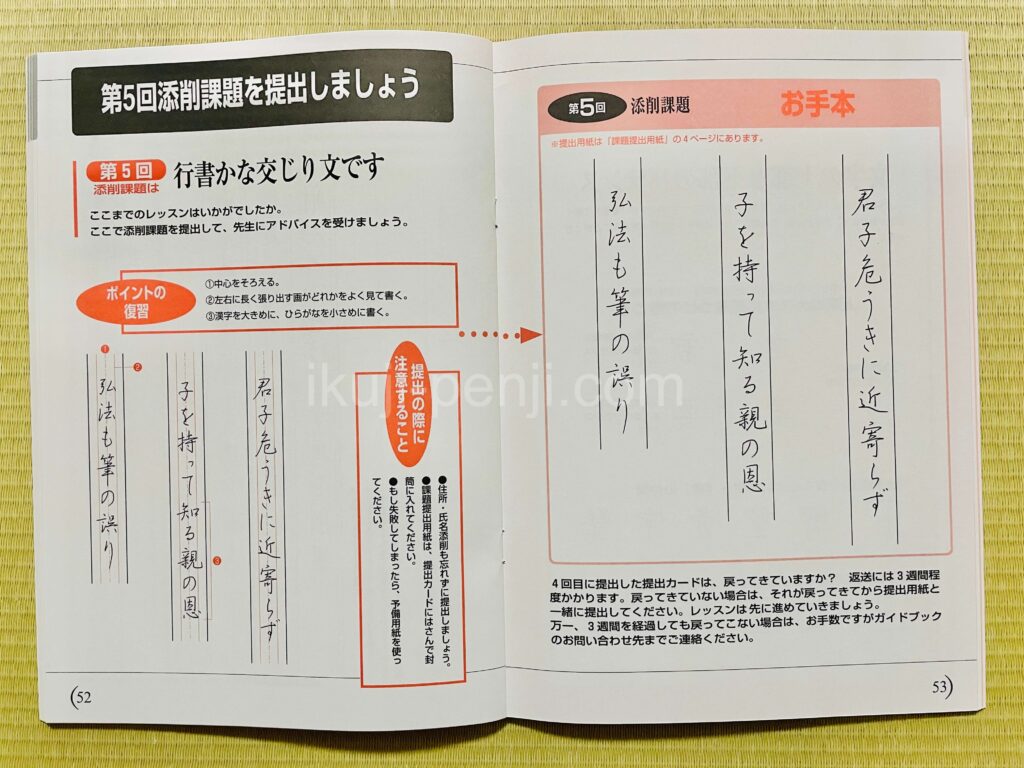 第5回添削課題を提出しましょう
第5回
添削課題は
行書かな交じり文です
ここまでのレッスンはいかがでしたか。
ここで添削課題を提出して、先生にアドバイスを受けましょう。
ポイントの
復習
①中心をそろえる。
②左右に長く張り出す画がどれかをよく見て書く。
③漢字を大きめに、ひらがなを小さめに書く。
君子危うきに近寄らず
子を持って知る親の恩
弘法も筆の誤り
①
②
③
提出の際に
注意すること
●住所・氏名添削も忘れずに提出しましょう。
●課題提出用紙は、提出カードにはさんで封
筒に入れてください。
●もし失敗してしまったら、予備用紙を使っ
てください。
52
第5回
添削課題
お手本
※提出用紙は「課題提出用紙」の4ページにあります。
君子危うきに近寄らず
子を持って知る親の恩
弘法も筆の誤り
4回目に提出した提出カードは、戻ってきていますか? 返送には3週間程
度かかります。戻ってきていない場合は、それが戻ってきてから提出用紙と
一緒に提出してください。レッスンは先に進めていきましょう。
万一、3週間を経過しても戻ってこない場合は、お手数ですがガイドブック
のお問い合わせ先までご連絡ください。
53
ikuji-penji.com